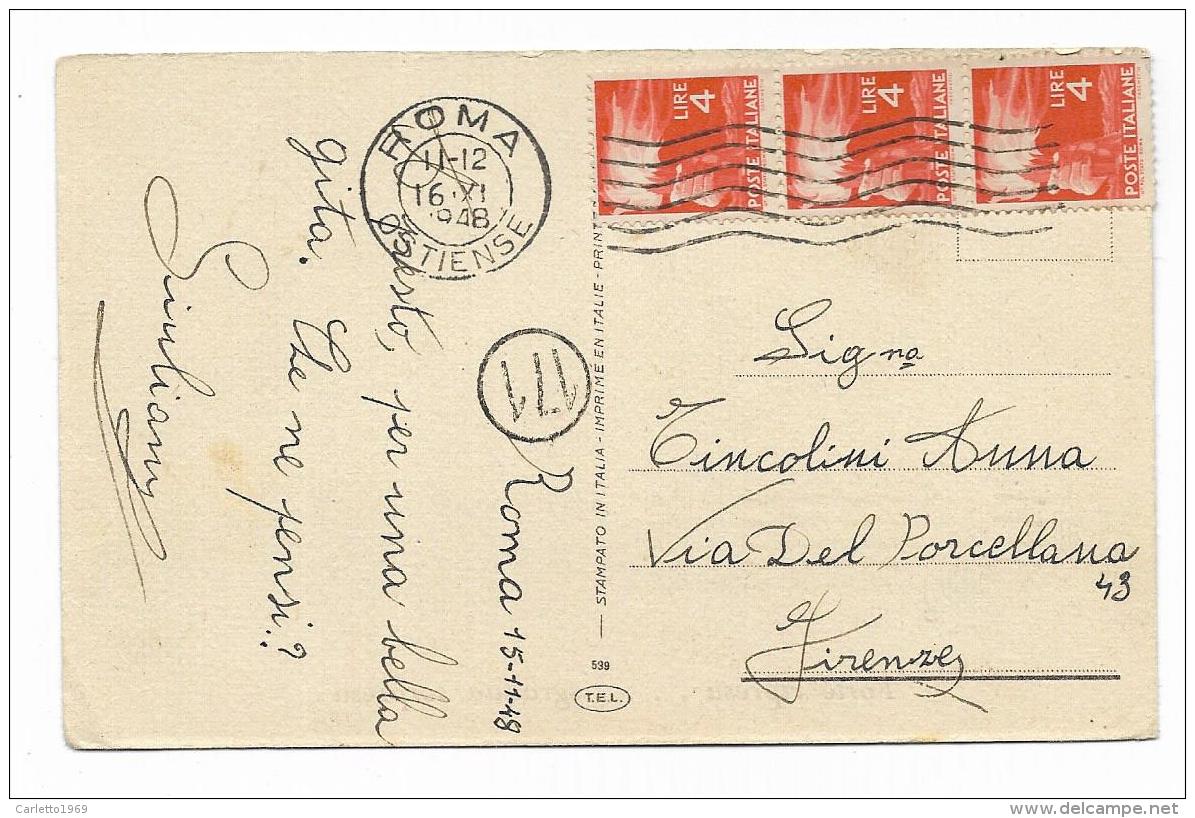 LIRE 4
POSTE ITALIANE
LIRE 4
POSTE ITALIANE
LIRE 4
POSTE ITALIANE
ROMA
11-12
16 XI
1948
OSTIENSE
171
Roma 15-11-48
questo, per una bella
gita. Che ne pensi?
STAMPATO IN ITALIA - IMPRIME EN ITALIE - PRINTE
599
T.E.L.
Sig na
Tincolini Anna
Via Del Porcellana
43
Firenze
Carletto1969
delcampe.net